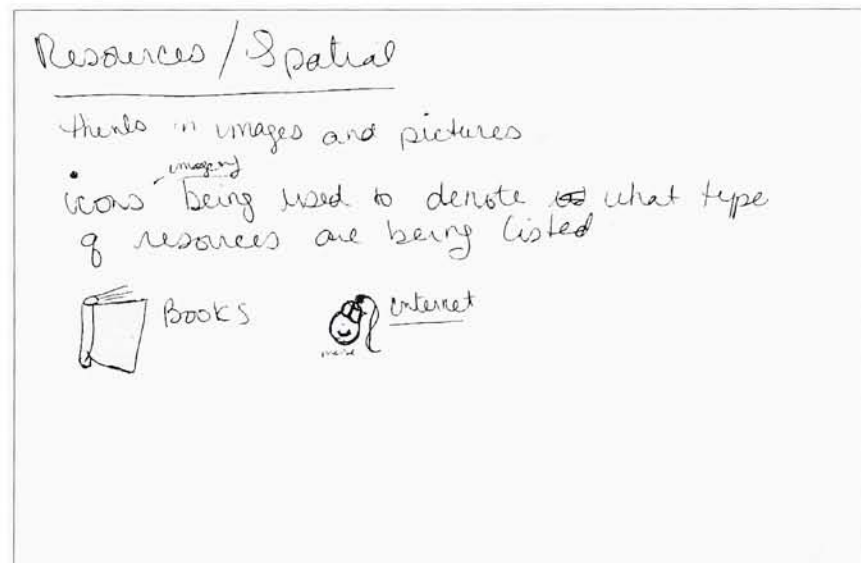 Resources / Spatial
thinks in images and pictures
imagery
icons being used to denote what type
of resources are being listed
Books
internet
mouse